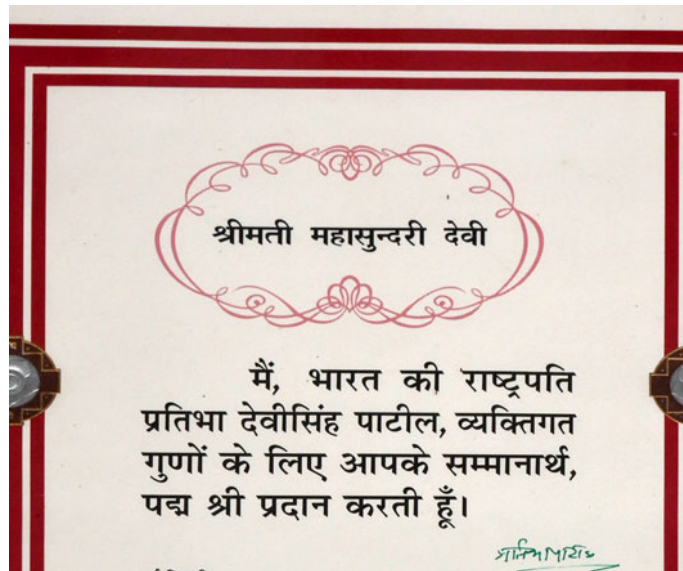 श्रीमती महासुन्दरी देवी
मैं, भारत की राष्ट्रपति
प्रतिभा देवीसिंह पाटील, व्यक्तिगत
गुणों के लिए आपके सम्मानार्थ,
पद्म श्री प्रदान करती हूँ।